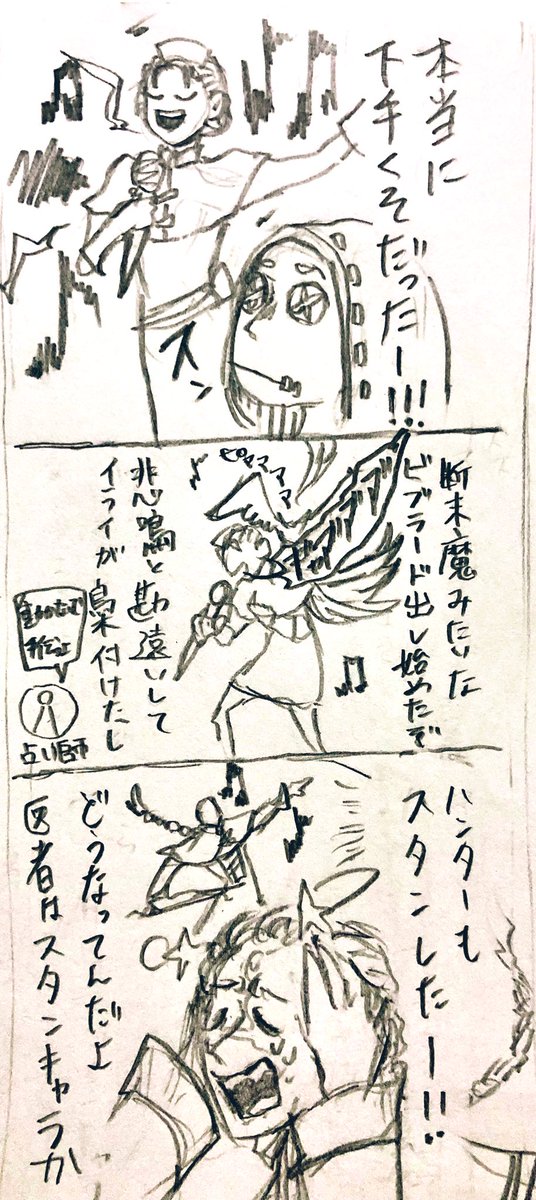 本当に
下手くそだったー!!!
スン
断末魔みたいな
ビブラード出し始めたぞ
ビャママママ
ギャアアアア
悲鳴と勘違いして
イライが梟付けたし
占い師
ハンターも
スタンしたー!!
どうなってんだよ
医者はスタンキャラか